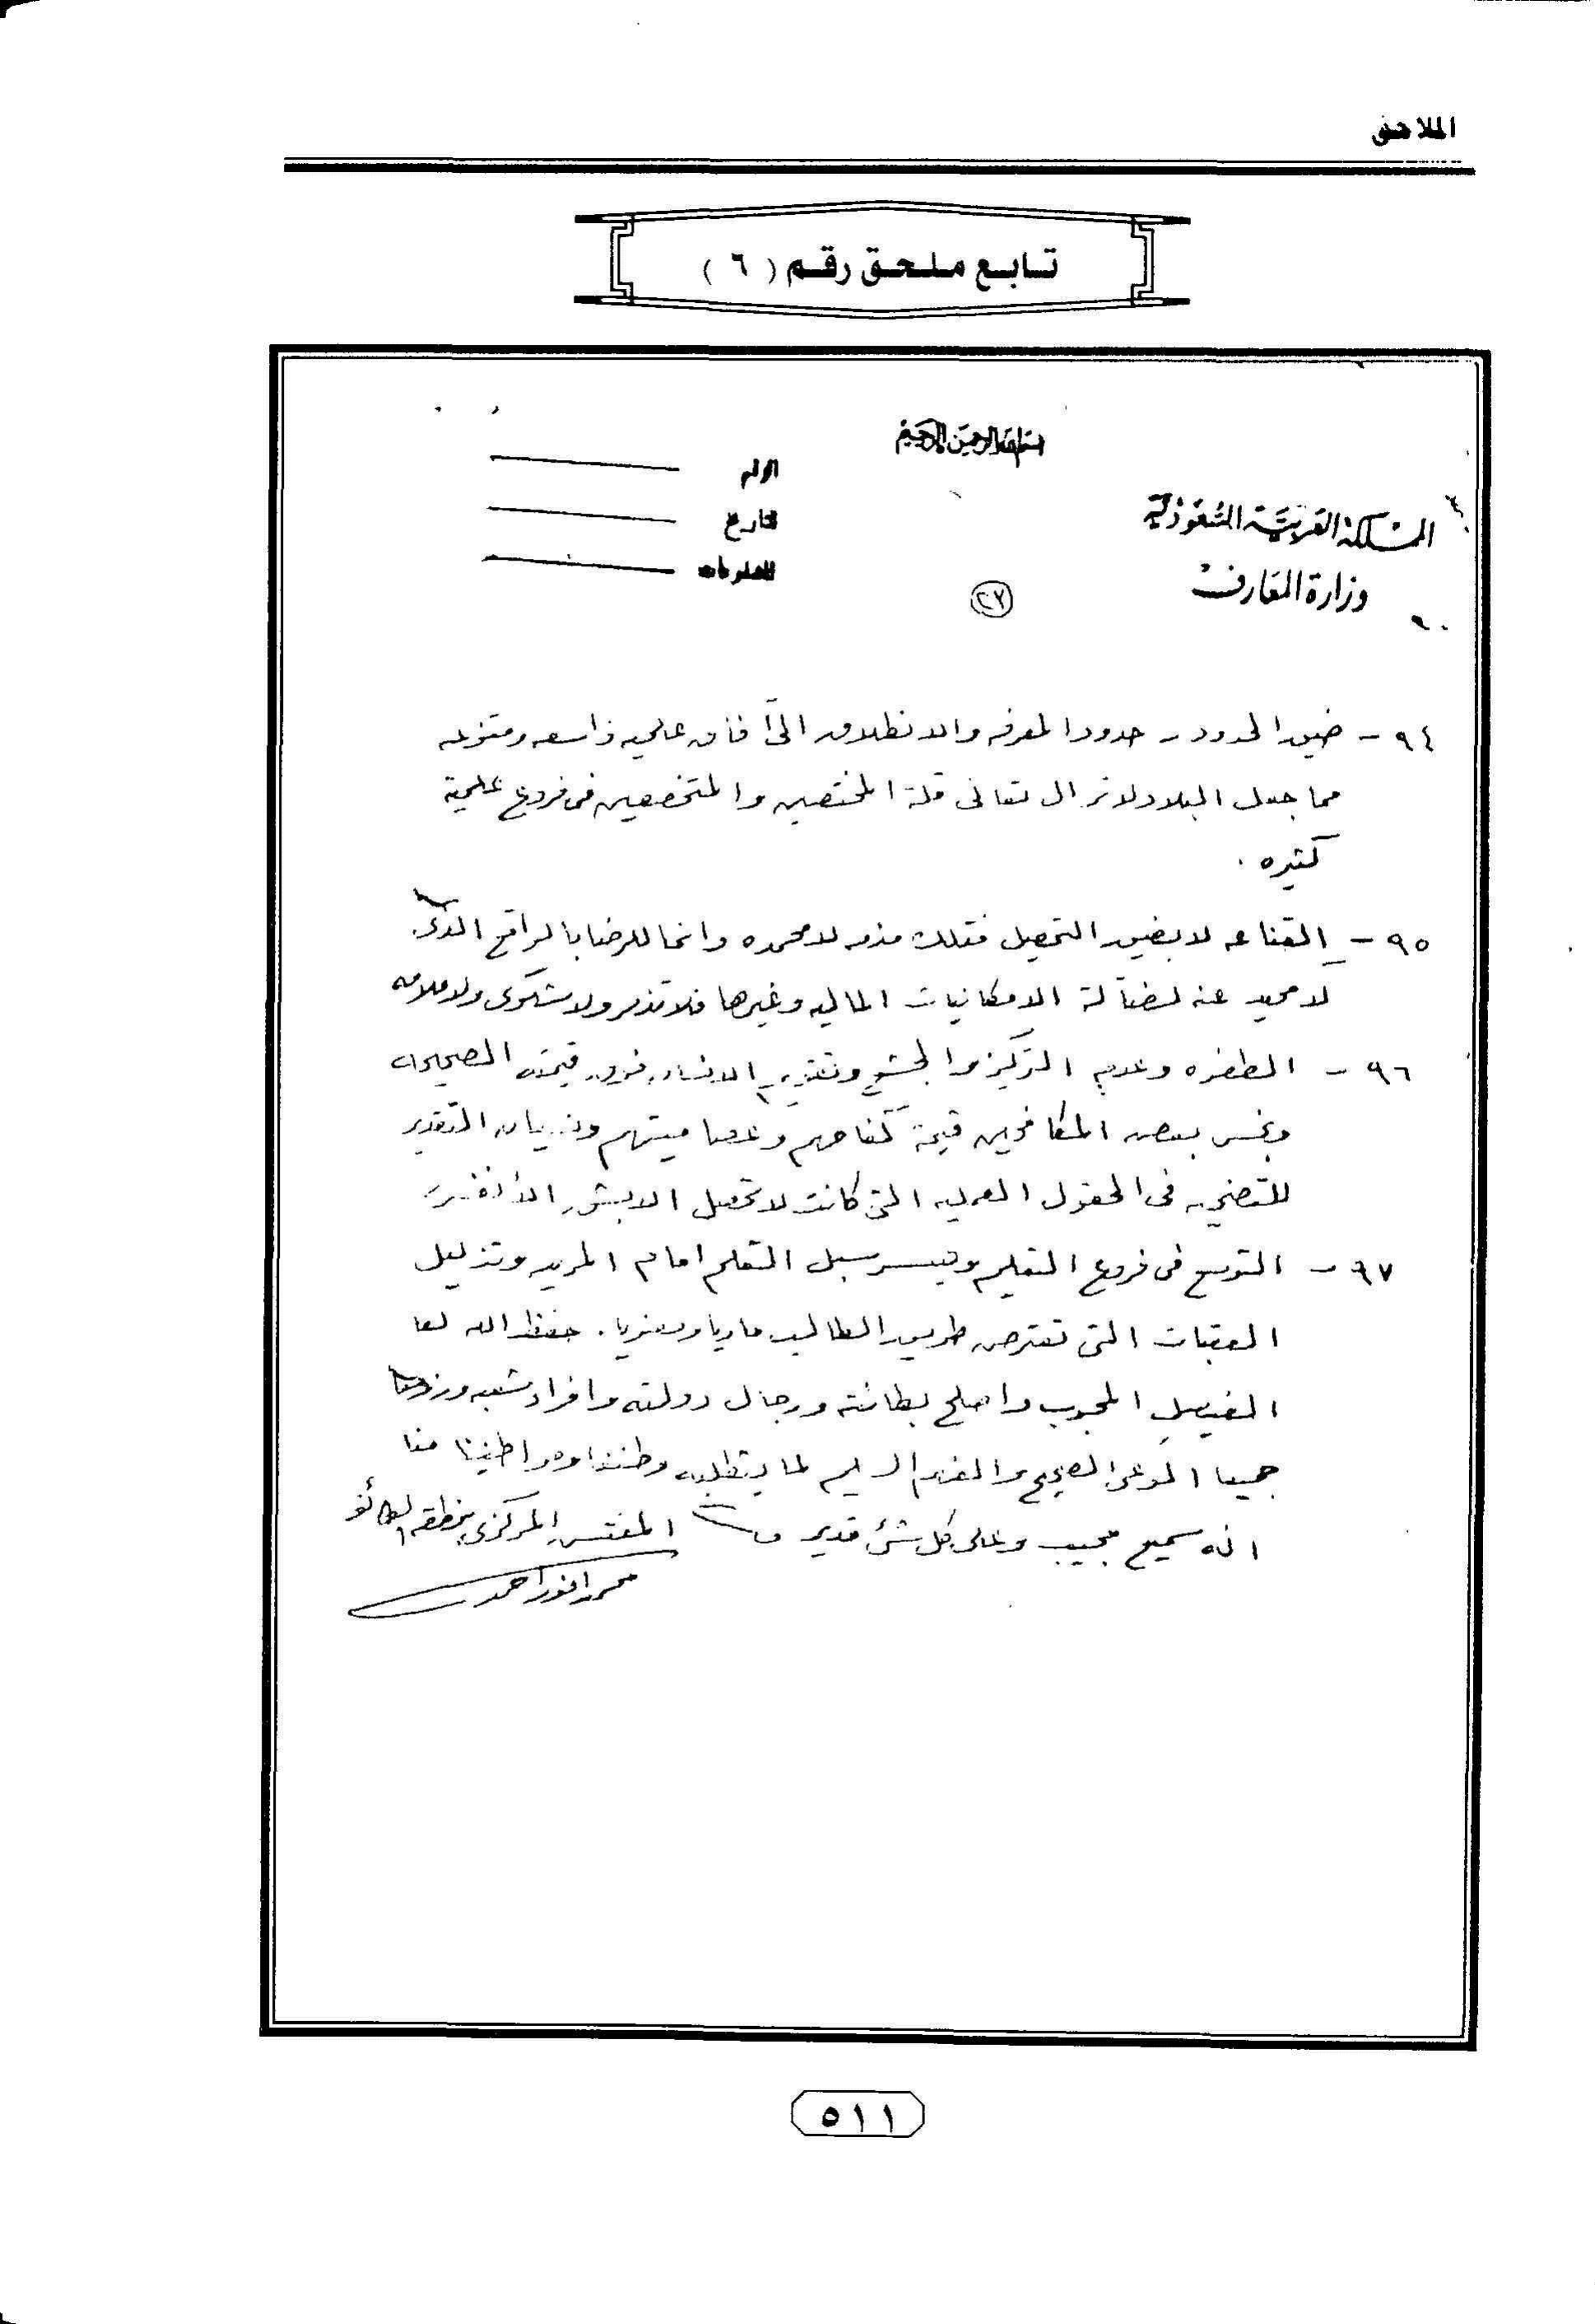 الملاحق
تابع ملحق رقم ( ٦ )
بسم الله الرحمن الرحيم
الرقم
المملكة العربية السعودية
التاريخ
وزارة المعارف
٢٧
٩٤ - ضيق الحدود - حدود المعرفه والانطلاق الى آفاق علميه واسعه ومتنوعه
مما جعل البلاد لا تزال تعانى قلة المختصين والمتخصصين فى فروع علمية
كثيره .
٩٥ - القناعه لا بضيق التحصيل فتلك مذمه لا محمده وانما للرضا بالواقع الذى
لا محيد عنه لضآلة الامكانيات الماليه وغيرها فلا تذمر ولا شكوى ولا ملامه
٩٦ - الطفره وعدم التركيز والجشع وتقدير الانسان فوق قيمته الصحيحه
وبخس بعض المكافحين قيمة كفاحهم وعصاميتهم ونسيان التقدير
للتضحيه فى الحقول العمليه التى كانت لا تحصل الا بشق الأنفس
٩٧ - التوسع فى فروع التعليم وتيسير سبل التعلم امام المريد وتذليل
العقبات التى تعترض طريق الطالب ماديا ومعنويا . حفظ الله لنا
الفيصل المحبوب واصلح بطانته ورجال دولته وافراد شعبه ورزقنا
جميعا الوعى الصحيح والفهم السليم لما يتطلبه وطننا ومواطنينا منا
انه سميع مجيب وعلى كل شئ قدير
المفتش المركزى بمنطقة الطائف
محمد انور احمد
٥١١